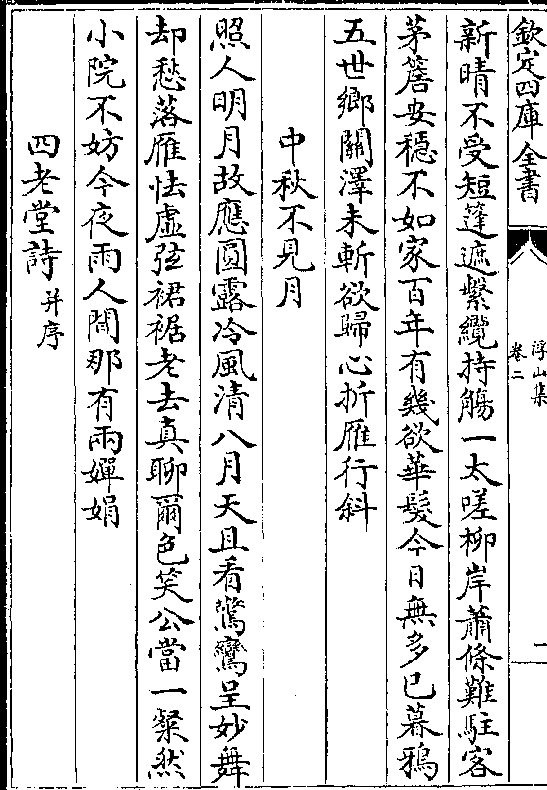 欽定四庫全書
浮山集
卷二
二
新晴不受短篷遮繫纜持觴一太嗟柳岸蕭條難駐客
茅簷安穩不如家百年有幾欲華髮今日無多已暮鴉
五世鄉關澤未斬欲歸心折雁行斜
中秋不見月
照人明月故應圓露冷風清八月天且看驚鸞呈妙舞
却愁落雁怯虛弦裙裾老去真聊爾色笑公當一粲然
小院不妨今夜雨人間那有兩嬋娟
四老堂詩并序